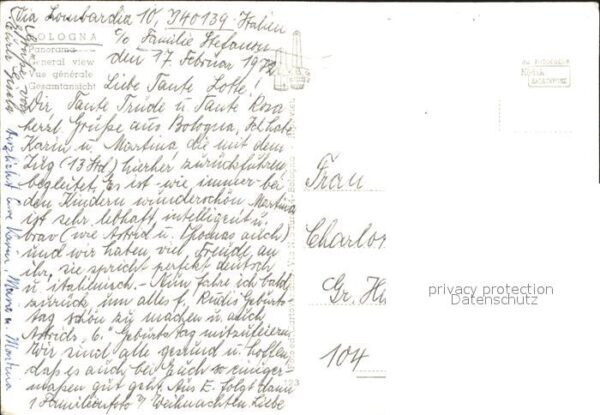 Via Lombardia 10, I40139 - Italien
c/o Familie Stefanon
den 17. Februar
BOLOGNA
Panorama
General view
Vue générale
Gesamtansicht
Liebe Tante Lotte!
Dir, Tante Trude u. Tante Rosa
herzl. Grüße aus Bologna,
Karin u. Martina, die mit dem
Zug (13 Std) hierher zurückführen
begleitet. Es ist - wie immer - bei
den Kindern wunderschön. Martina
ist sehr lebhaft, intelligent u.
brav (wie Astrid u. Thomas auch)
und wir haben viel Freude an
ihr, sie spricht perfekt deutsch
u. italienisch. - Nun fahre ich bald
zurück um alles f. Rudis Geburts-
tag schön zu machen u. auch
Astrids "6." Geburtstag mitzufeiern.
Wir sind alle gesund u. hoffen,
daß es auch bei Euch so einiger
maßen gut geht. Aus E. folgt dann
1 Familienfoto v. Weihnachten. Liebe
Grüße von
Herzlichst Eure Karin, u. Martina
Frau
Charlo
Gr. H
104
privacy protection
Datenschutz
123